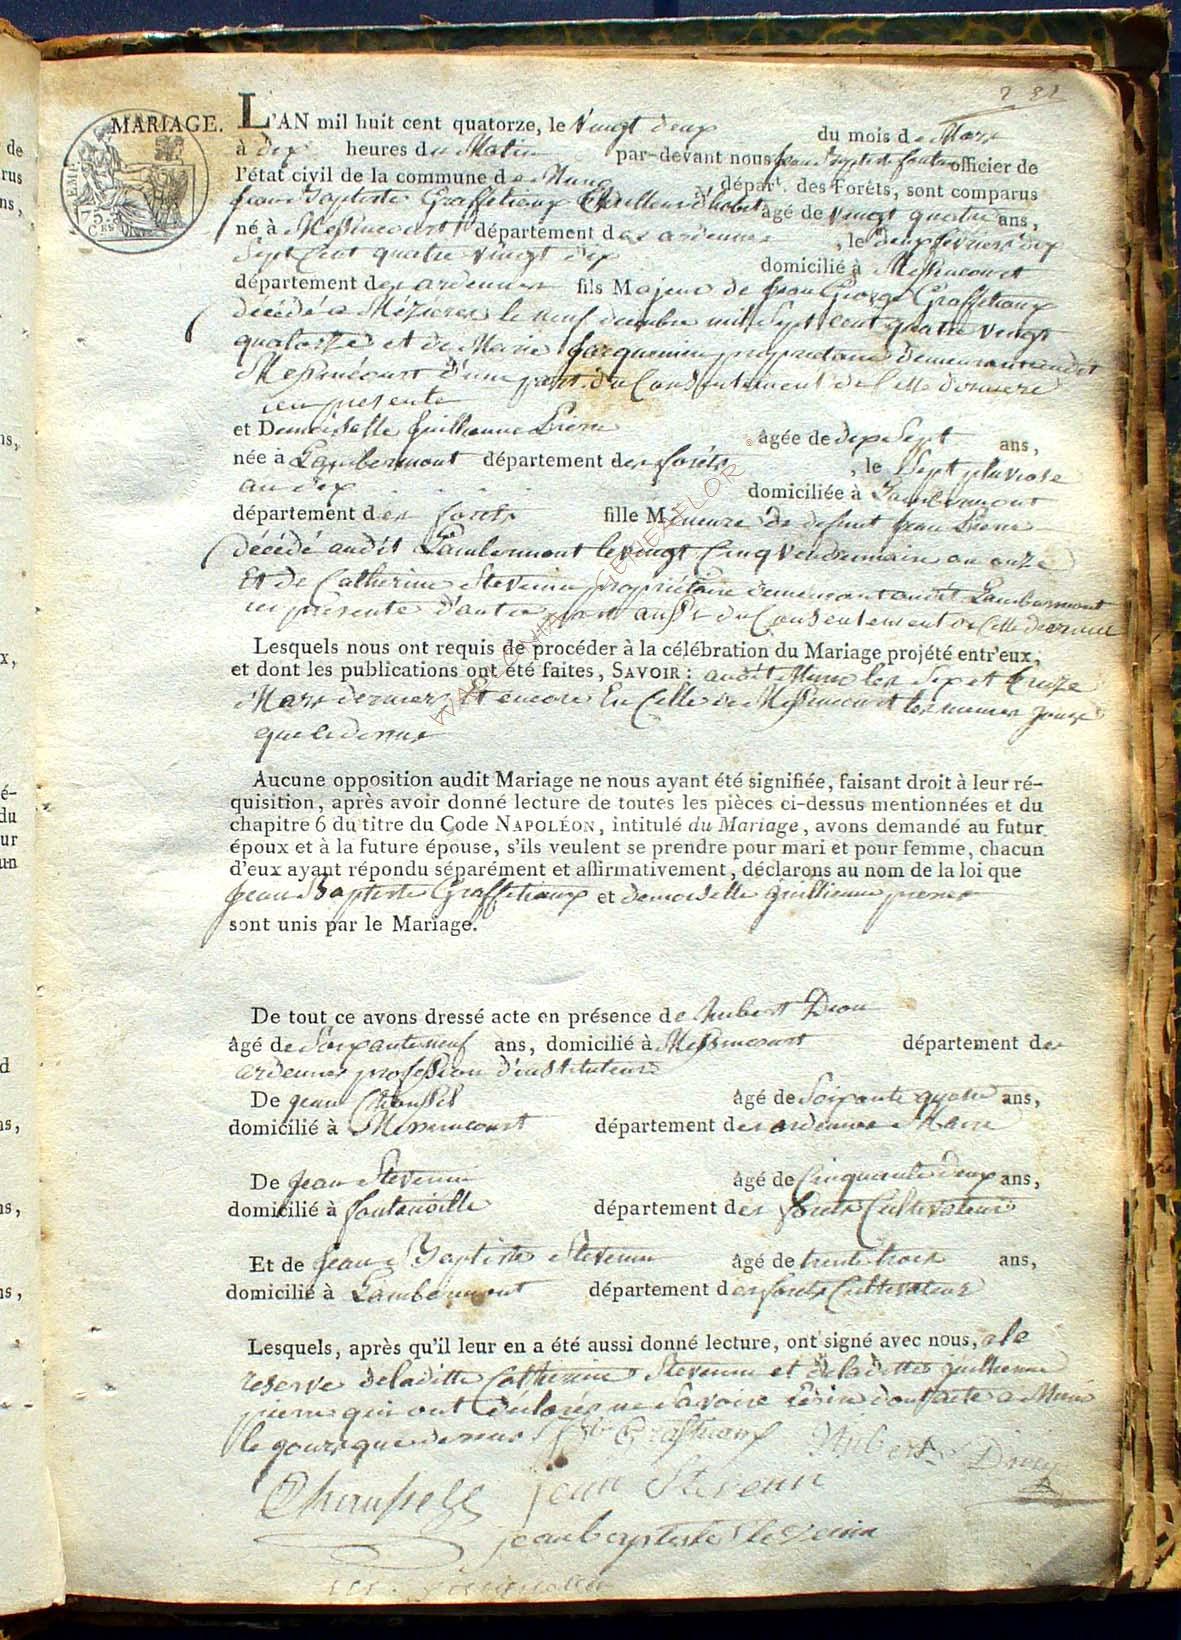 MARIAGE. L'AN mil huit cent quatorze, le vingt deux du mois de Mars
à dix heures du Matin par-devant nous jean baptiste officier de
l'état civil de la commune de Muno départ. des Forêts, sont comparus
jean Baptiste Graffetiaux tailleur d'habit âgé de vingt quatre ans,
né à Messincourt département des ardennes, le deux fevrier dix
Sept Cent quatre vingt dix domicilié à Messincourt
département des ardennes fils Majeur de jean George Graffetiaux
décédé a Mézières le neuf decembre mil Sept cent quatre vingt
quatorze et de Marie jacquemin propriétaire demeurante audit
Messincourt d'une part du Consentement de Cette derniere
ici presente
et Demoiselle guillienne Pierre âgée de dix Sept ans,
née à Lambermont département des forêts, le Sept pluviose
an dix domiciliée à Lambermont
département des forets fille Mineure de defunt jean Pierre
décédé audit Lambermont le vingt Cinq vendemiaire an onze
Et de Catherine Stevenin propriétaire demeurant audit Lambermont
ici présente d'autre part aussi du Consentement de Cette derniere
Lesquels nous ont requis de procéder à la célébration du Mariage projété entr'eux,
et dont les publications ont été faites, SAVOIR : audit Muno les Six et treize
Mars derniers Et encore En Celle de Messincourt les memes jours
que ledessus
Aucune opposition audit Mariage ne nous ayant été signifiée, faisant droit à leur ré-
quisition, après avoir donné lecture de toutes les pièces ci-dessus mentionnées et du
chapitre 6 du titre du Code NAPOLÉON, intitulé du Mariage, avons demandé au futur
époux et à la future épouse, s'ils veulent se prendre pour mari et pour femme, chacun
d'eux ayant répondu séparément et affirmativement, déclarons au nom de la loi que
jean Baptiste Graffetiaux et demoiselle guillienne pierre
sont unis par le Mariage.
De tout ce avons dressé acte en présence de hubert Drou
âgé de Soixante neuf ans, domicilié à Messincourt département des
ardennes profession d'instituteur
De jean âgé de Soixante quatre ans,
domicilié à Messincourt département des ardennes Maire
De jean Stevenin âgé de Cinquante deux ans,
domicilié à fontenoille département des forets Cultivateur
Et de jean Baptiste Stevenin âgé de trente trois ans,
domicilié à Lambermont département des forets Cultivateur
Lesquels, après qu'il leur en a été aussi donné lecture, ont signé avec nous, a la
reserve de laditte Catherine Stevenin et de laditte guillienne
pierre qui ont declarés ne Savoire Ecrire dont acte a Muno
le jours que dessus
Hubert
jean Stevenin
jean baptiste Stevenin
75
WALLONIA GENEAFLOR